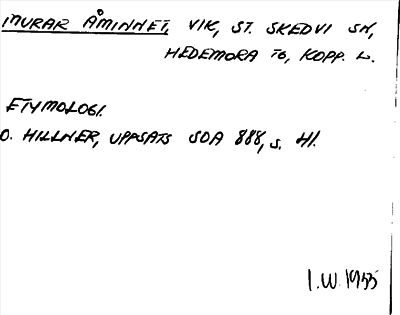 MURAR ÅMINNET, VIK, ST. SKEDVI SN,
HEDEMORA TG, KOPP. L.
ETYMOLOGI.
O. HILLNER, UPPSATS SOA 888, s. 41.
I.W. 1955